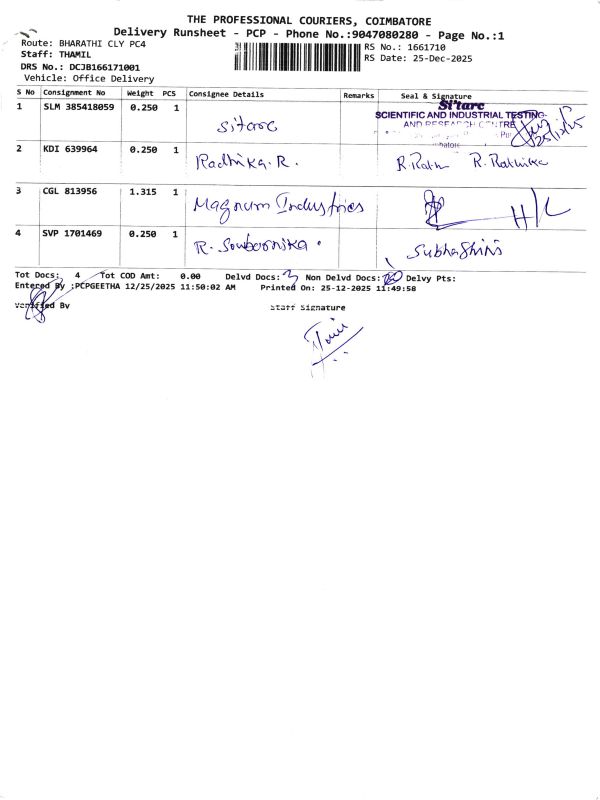 THE PROFESSIONAL COURIERS, COIMBATORE
Delivery Runsheet - PCP - Phone No.:9047080280 - Page No.:1
Route: BHARATHI CLY PC4
Staff: THAMIL
DRS No.: DCJB166171001
Vehicle: Office Delivery
RS No.: 1661710
RS Date: 25-Dec-2025
S No Consignment No Weight PCS Consignee Details Remarks Seal & Signature
1 SLM 385418059 0.250 1 Sitarc
Si'tarc
SCIENTIFIC AND INDUSTRIAL TESTING
AND RESEARCH CENTRE
25/12/25
2 KDI 639964 0.250 1 Radhika.R. R. Rathika
3 CGL 813956 1.315 1 Magnum Industries
4 SVP 1701469 0.250 1 R. Sowbarnika. Subhashini
Tot Docs: 4 Tot COD Amt: 0.00 Delvd Docs: 3 Non Delvd Docs: Delvy Pts:
Entered By :PCPGEETHA 12/25/2025 11:50:02 AM Printed On: 25-12-2025 11:49:58
Verified By Staff Signature